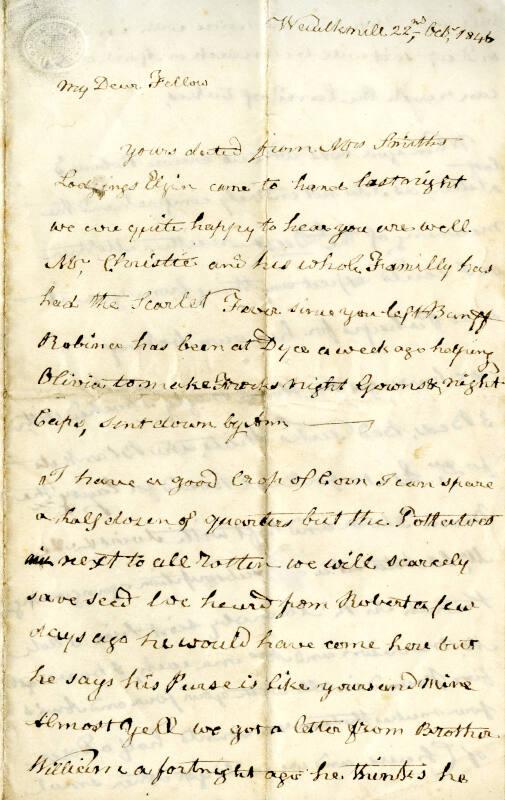 Waulkmill 22nd, Octr, 1846
My Dear Fellow
Yours dated from Mrs Smiths
Lodgings Elgin came to hand last night
we are quite happy to hear you are well
Mr, Christie and his whole Familly has
had the Scarlet Fever since you left Banff
Robina has been at Dyce a week ago helping
Olivia to make Frocks night Gowns & night
Caps, sent down by Ann
I have a good Crop of Corn I can spare
a half dozen of quarters but the Pottatoes
next to all Rotten we will scarcely
save seed We heard from Robert a few
days ago he would have come here but
he says his Purse is like yours and Mine
Almost Yell we got a letter from Brother
William a fortnight ago he thinks he